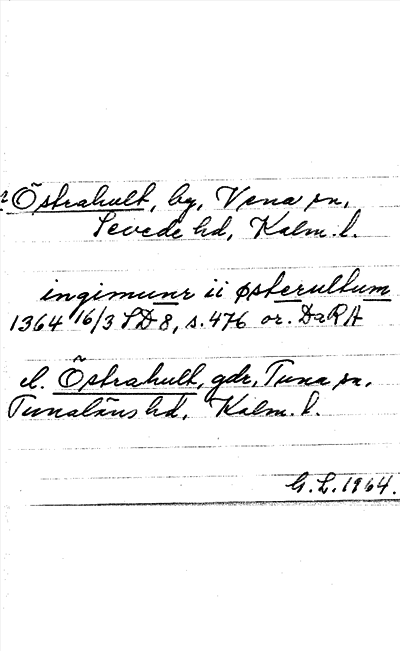 ? Östrahult, by, Vena sn,
Sevede hd, Kalm. l.
ingimunr ii østerultum
1364 16/3 SD 8, s. 476 or. DaRA
el. Östrahult, gdr, Tuna sn,
Tunaläns hd, Kalm. l.
G. L. 1964.